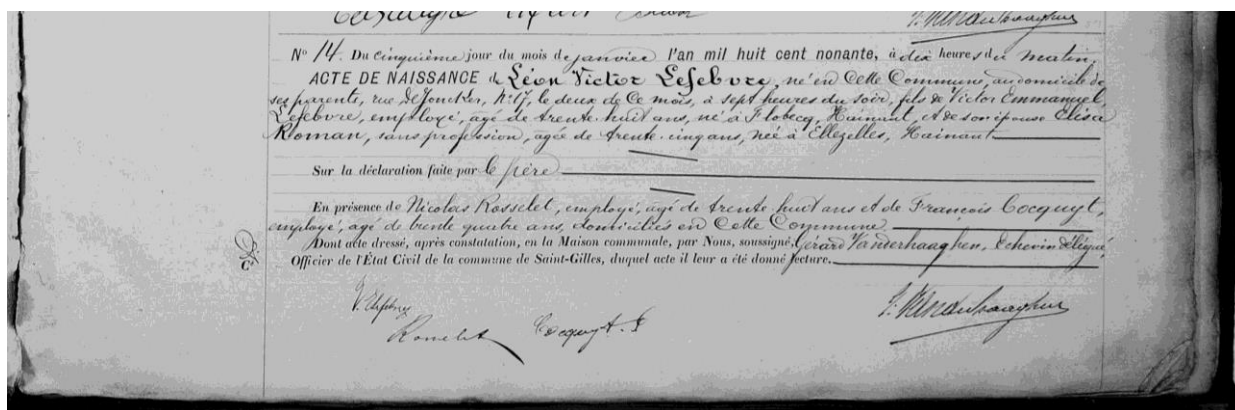 Nº 14. Du cinquième jour du mois de janvier l'an mil huit cent nonante, à dix heures du matin,
ACTE DE NAISSANCE de Léon Victor Lefebvre, né en cette Commune, au domicile de
ses parents, rue DeJoncker, Nº 17, le deux de ce mois, à sept heures du soir, fils de Victor Emmanuel
Lefebvre, employé, agé de trente huit ans, né à Flobecq, Hainaut, et de son épouse Elisa
Roman, sans profession, agée de trente-cinq ans, née à Ellezelles, Hainaut
Sur la déclaration faite par le père
En présence de Nicolas Rosselet, employé, agé de trente huit ans et de François Cocquyt,
employé, agé de trente quatre ans, domiciliés en cette Commune
Dont acte dressé, après constatation, en la Maison communale, par Nous, soussigné, Gérard Vanderhaaghen, Echevin délégué,
Officier de l'État Civil de la commune de Saint-Gilles, duquel acte il leur a été donné lecture.
V. Lefebvre
Rosselet Cocquyt. F